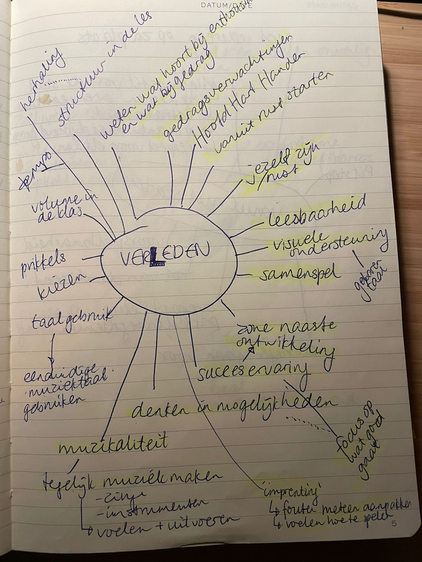 DATUM/DATE
herhaling
structuur in de les
weten wat hoort bij enthousi
en wat bij gedrag
gedragsverwachtingen
Hoofd Hart Handen
vanuit rust starten
tempo
jezelf zijn
/rust
volume in
de klas
leesbaarheid
visuele
ondersteuning
gebaren
taal
prikkels
VERLEDEN
samenspel
kiezen
taalgebruik
zone naaste
ontwikkeling
succeservaring
eenduidige
muziektaal
gebruiken
denken in mogelijkheden
focus op
wat goed
gaat
muzikaliteit
tegelijk muziek maken
- instrumenten
↳ voelen + uitvoeren
'imprenting'
↳ fouten meteen aanpakken
↳ voelen hoe te spelen
5